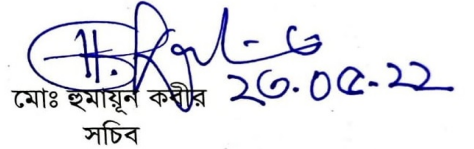 ২৩.০৫.২২
মোঃ হুমায়ূন কবীর
সচিব